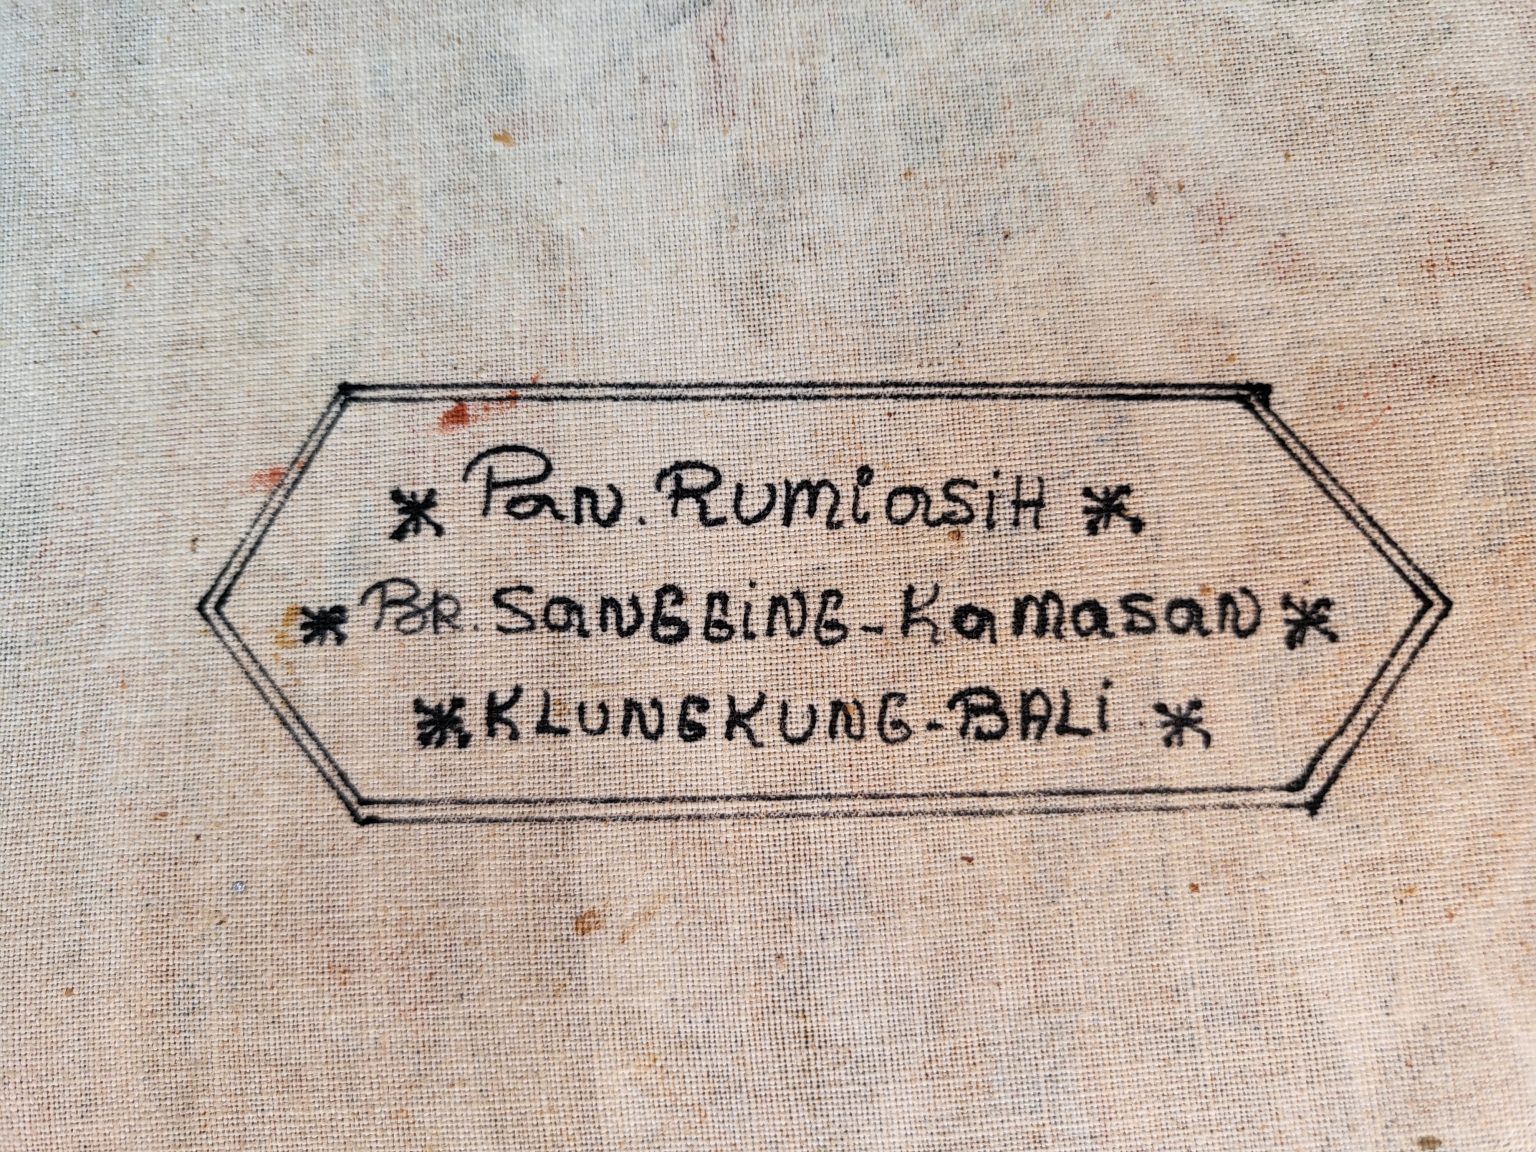 * Pan. Rumiasih *
* BR. SANGGING - Kamasan *
* KLUNGKUNG - BALI . *